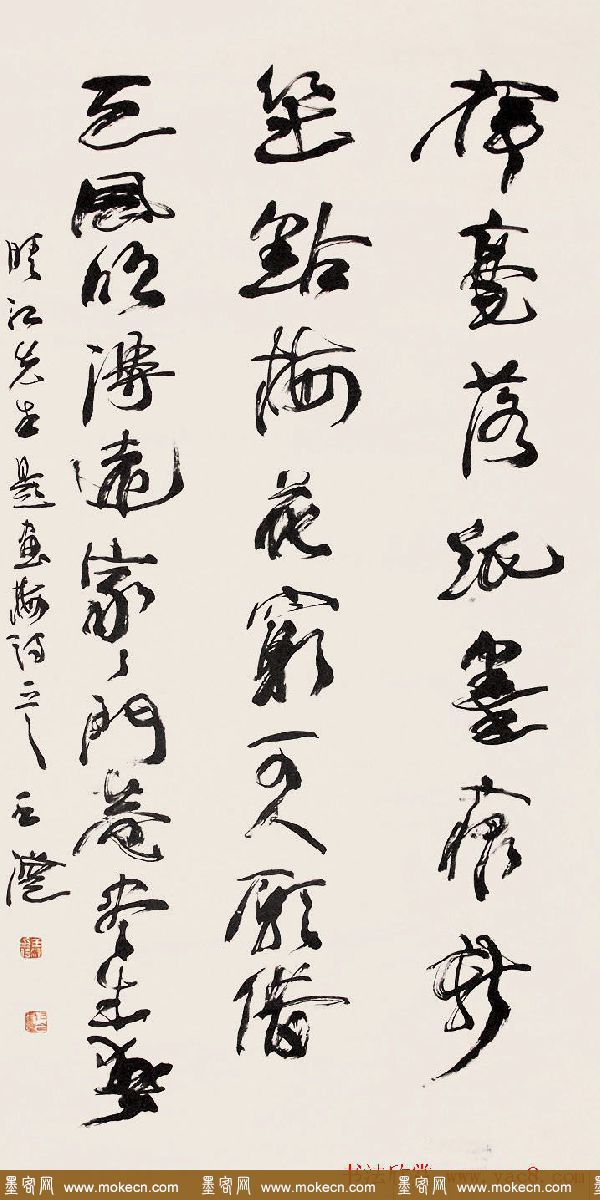 揮毫落紙墨痕新
幾點梅花最可人願借
天風吹得遠家々門巷盡成春
晴江先生題畫梅詩之 王澄
墨客网 www.mokecn.com 墨客网 www.mokecn.com 墨客网 www.mokecn.com